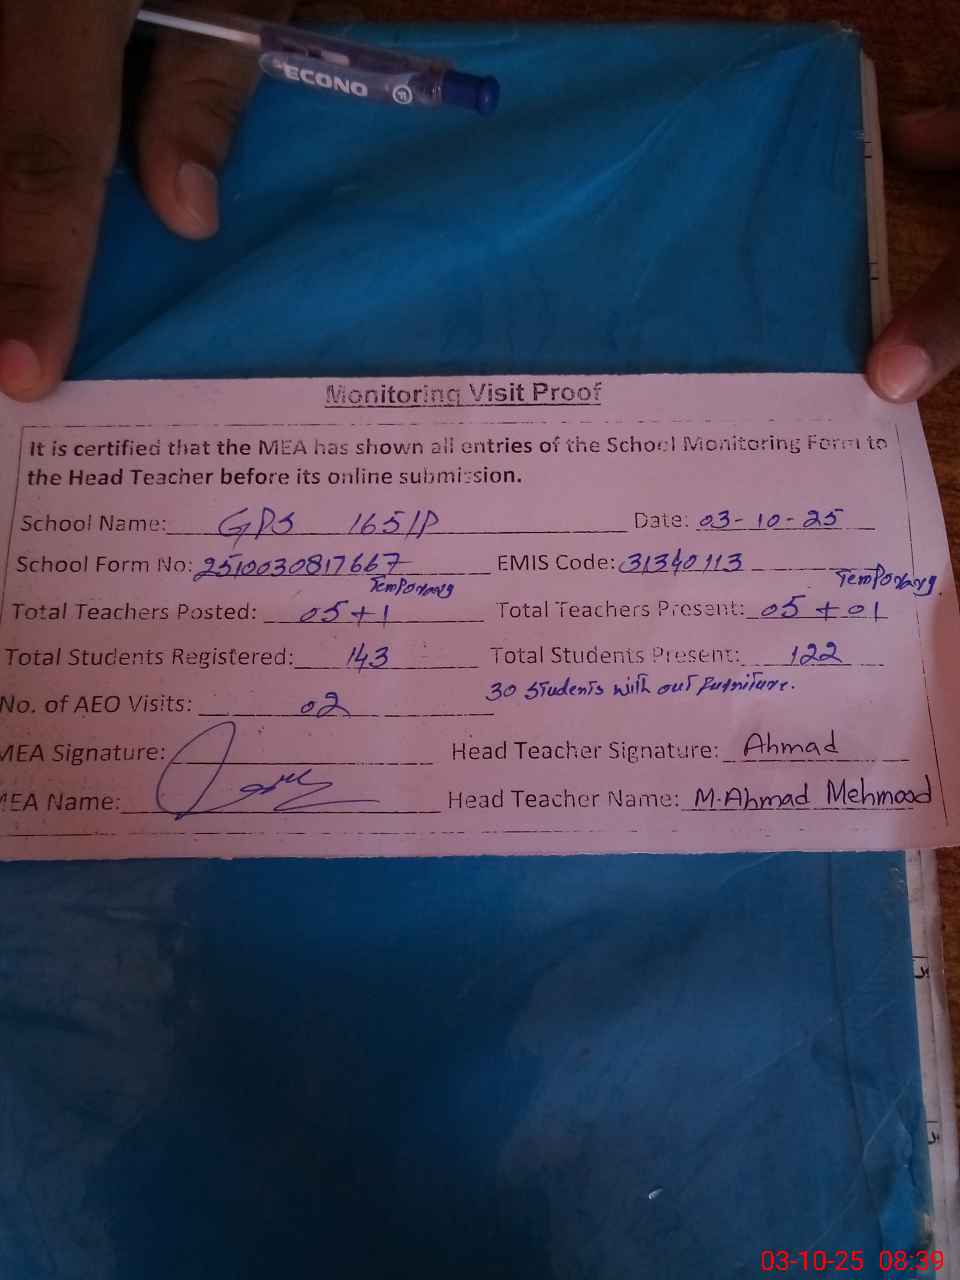 ECONO
Monitoring Visit Proof
It is certified that the MEA has shown all entries of the School Monitoring Form to
the Head Teacher before its online submission.
School Name: GPS 165/P Date: 03-10-25
School Form No: 2510030817667 EMIS Code: 31340113
Temporary Temporary.
Total Teachers Posted: 05+1 Total Teachers Present: 05 + 01
Total Students Registered: 143 Total Students Present: 122
30 Students with out furniture.
No. of AEO Visits: 02
MEA Signature: Head Teacher Signature: Ahmad
MEA Name: Head Teacher Name: M.Ahmad Mehmood
03-10-25 08:39